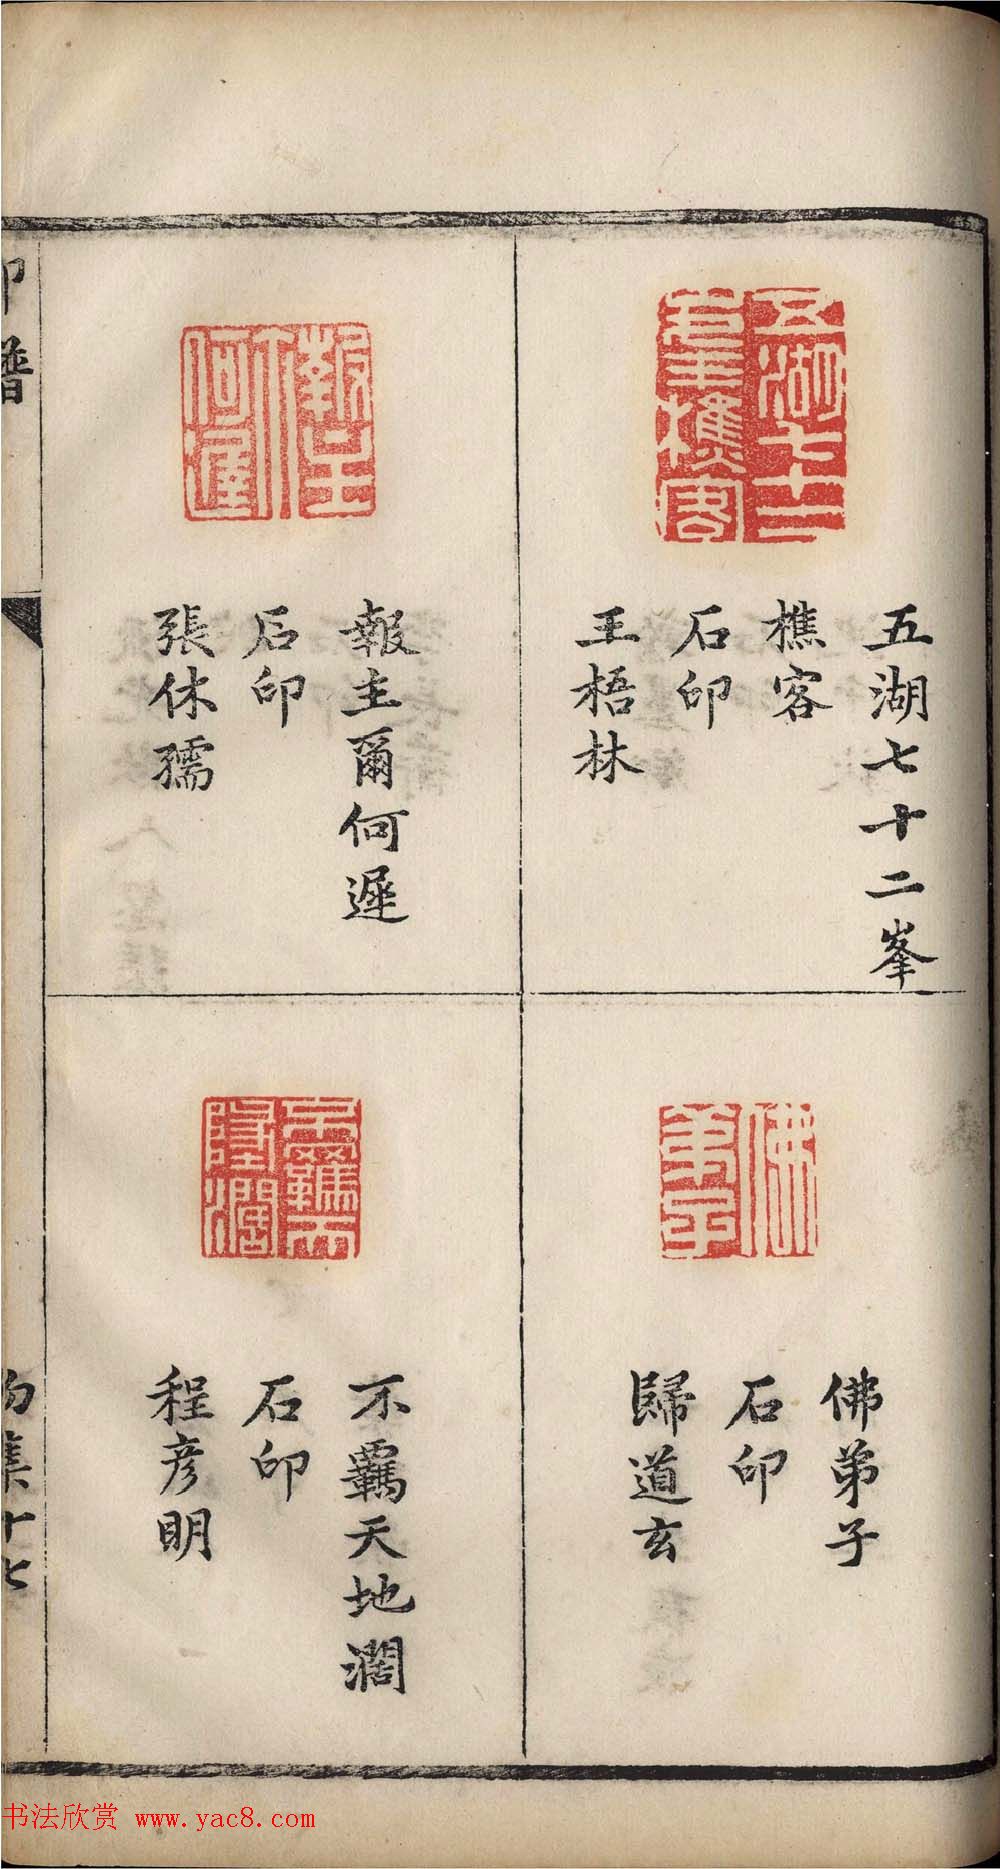 五湖七十二峯
樵客
石印
王梧林
報主爾何遲
石印
張休孺
佛弟子
石印
歸道玄
不羈天地濶
石印
程彦明
印譜
集十七
书法欣赏 www.yac8.com